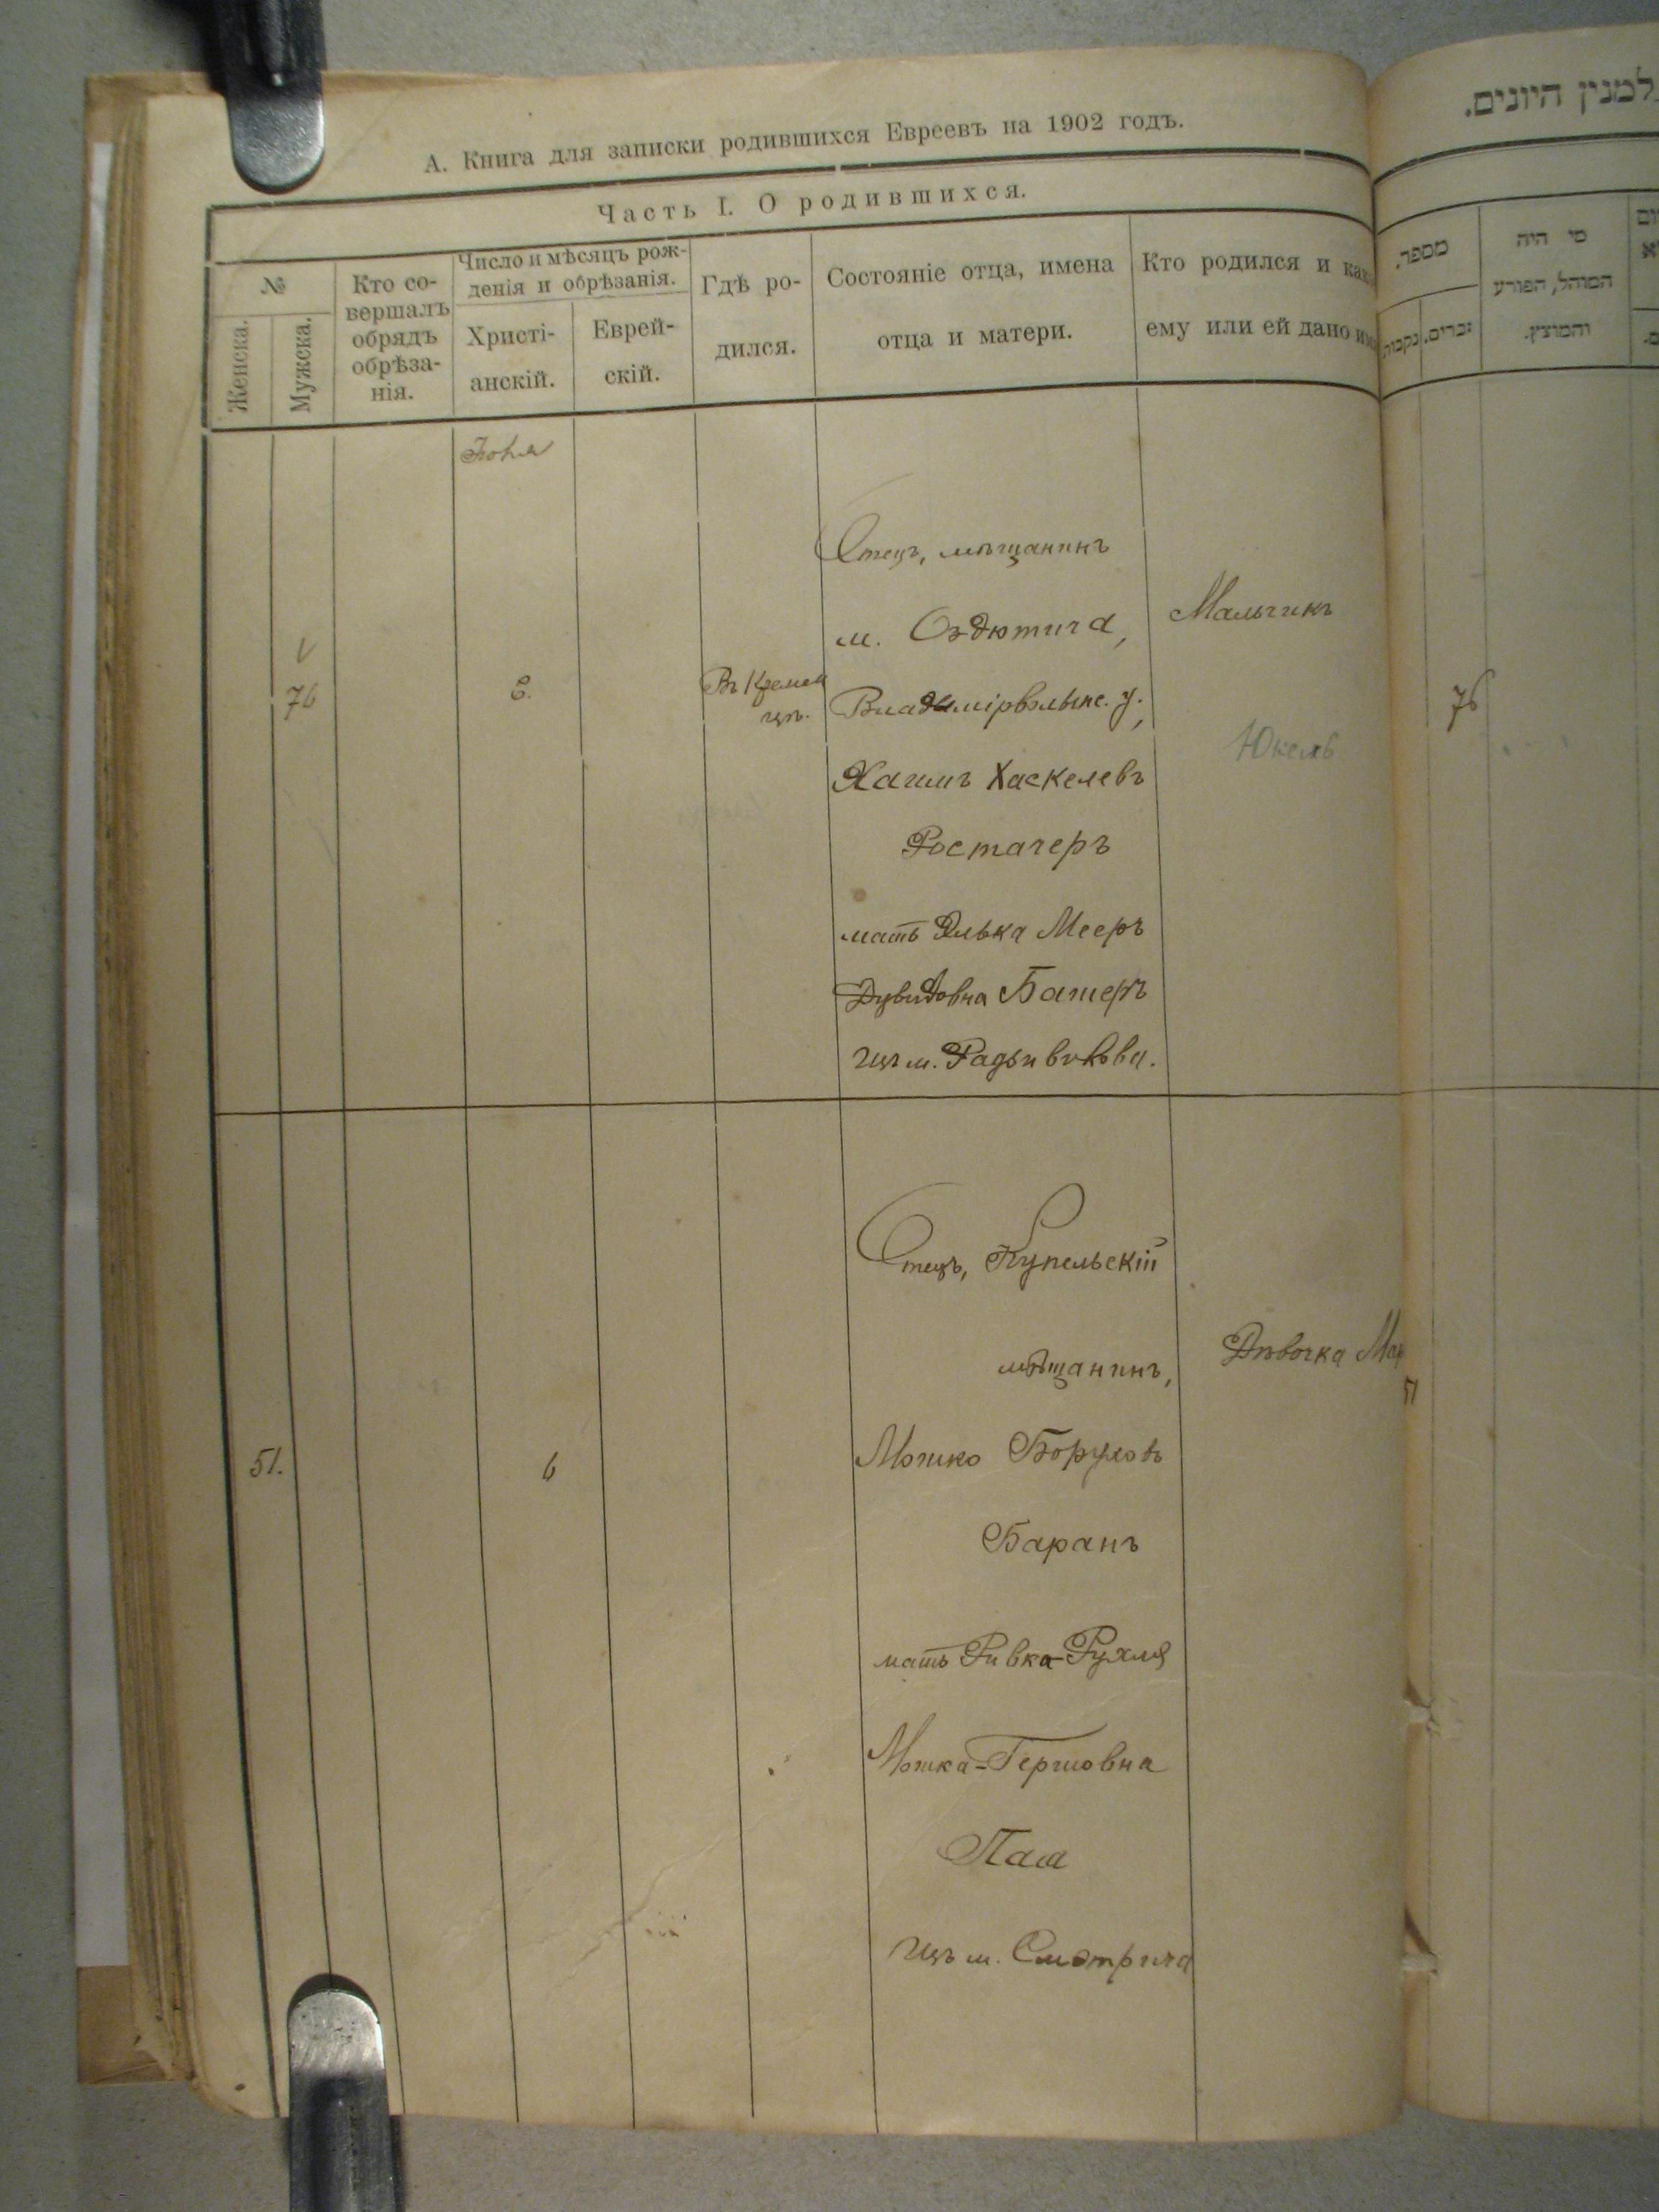 А. Книга для записки родившихся Евреевъ на 1902 годъ.
Часть I. О родившихся.
№
Женска.
Мужска.
Кто со-
вершалъ
обрядъ
обрѣза-
нія.
Число и мѣсяцъ рож-
денія и обрѣзанія.
Христі-
анскій.
Еврей-
скій.
Гдѣ ро-
дился.
Состояніе отца, имена
отца и матери.
Кто родился и како
ему или ей дано им
76
6.
Въ Кремен
цѣ.
Отецъ, мѣщанинъ
м. Оздютича,
Владимірволынс. у.,
Хаимъ Хаскелевъ
Ростачеръ
мать Элька Мееръ
Дувидовна
изъ м.
Мальчикъ
Юкель
51.
6
Отецъ, Купельскій
мѣщанинъ,
Мошко Боруховъ
Баранъ
мать Ривка-Рухля
Мошка-Гершовна
изъ м. Смотрича
Дѣвочка
למנין היונים.
מספר.
נקבות
זכרים.
מי היה
המוהל, הפורע
והמוצץ.
76
51